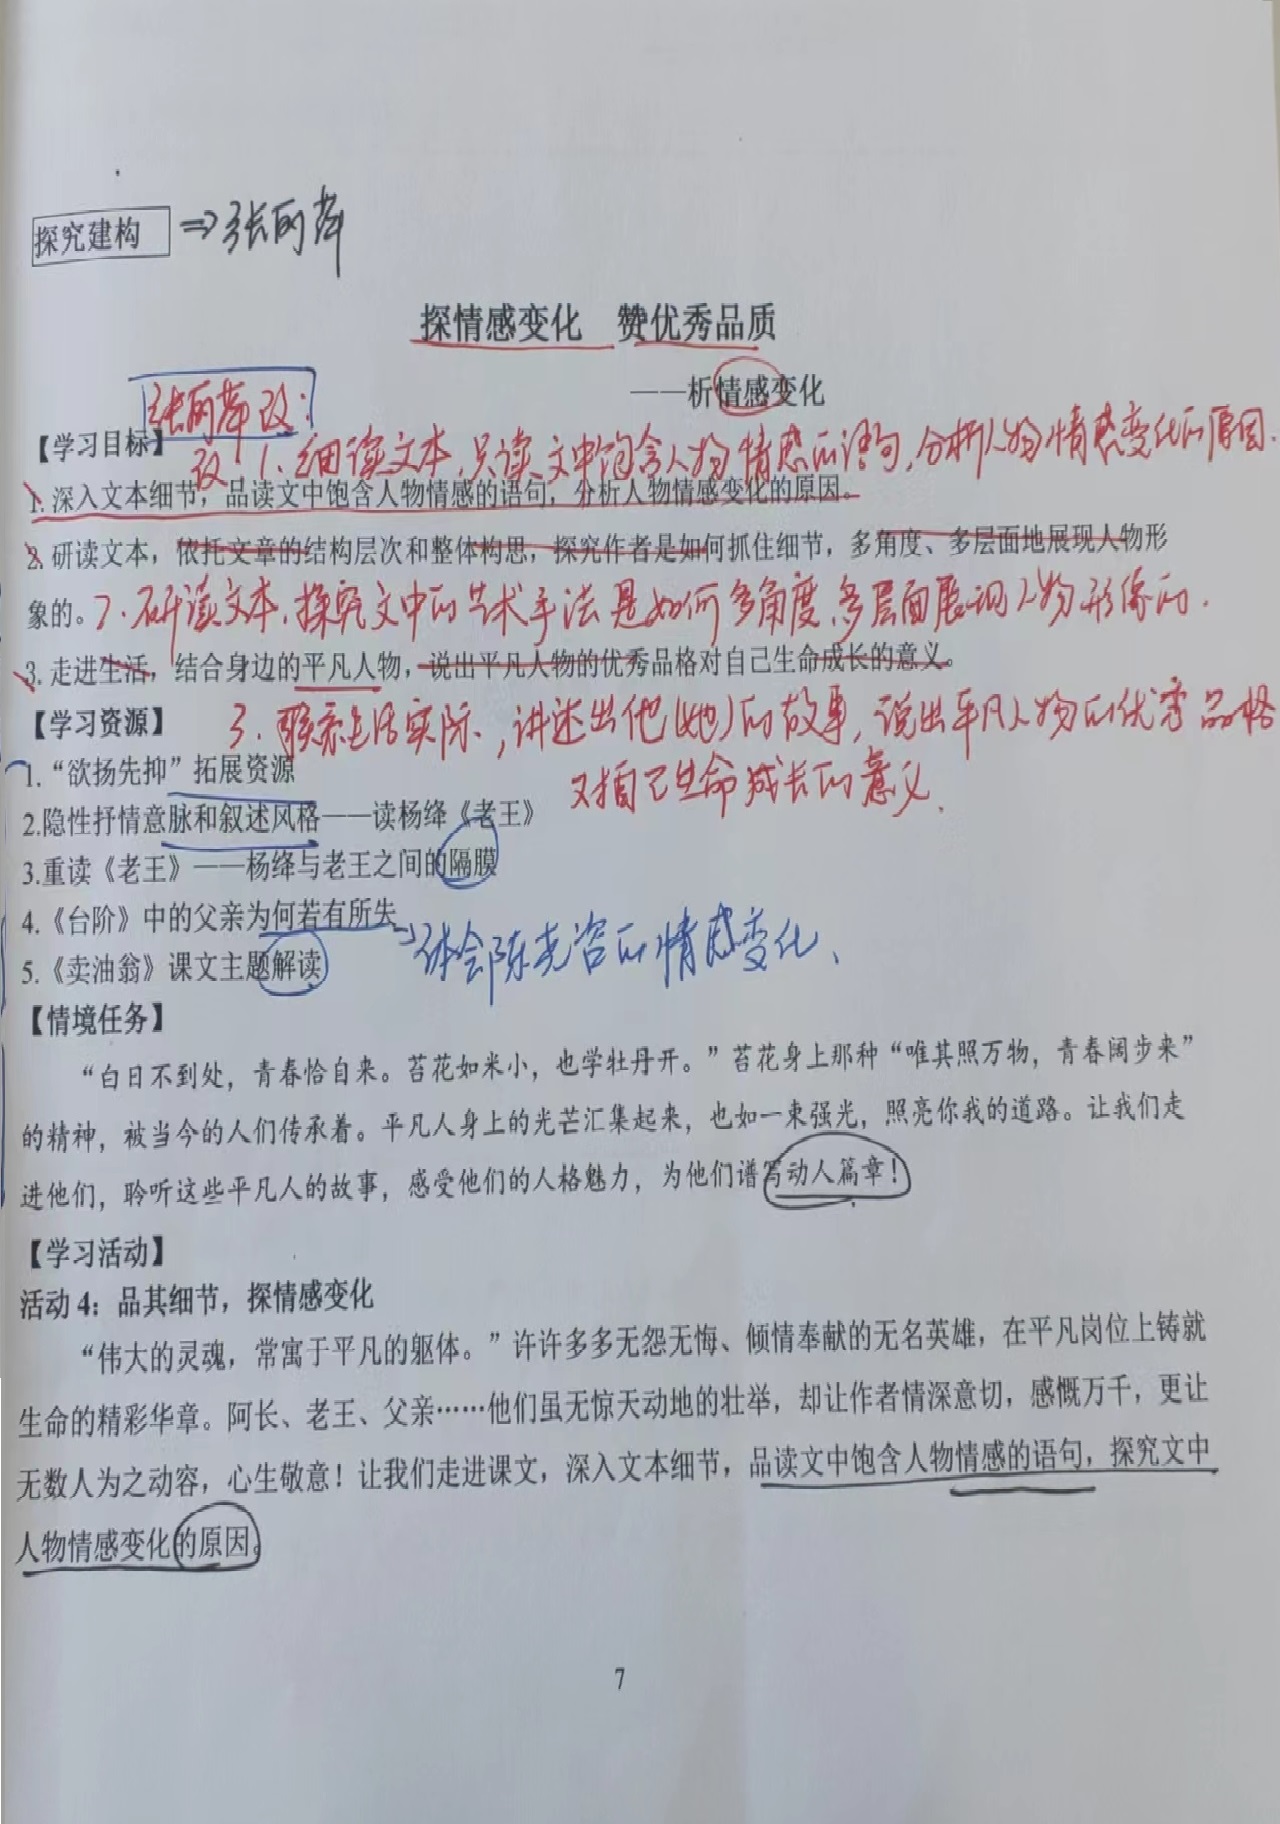 探究建构 ⇒张丽萍
探情感变化 赞优秀品质
——析情感变化
张丽萍改:
【学习目标】
改:1、细读文本,品读文中饱含人物情感的语句,分析人物情感变化的原因.
1. 深入文本细节,品读文中饱含人物情感的语句,分析人物情感变化的原因。
2. 研读文本,依托文章的结构层次和整体构思,探究作者是如何抓住细节,多角度、多层面地展现人物形
象的。
2、研读文本,探究文中的艺术手法是如何多角度、多层面展现人物形象的.
3. 走进生活,结合身边的平凡人物,说出平凡人物的优秀品格对自己生命成长的意义。
【学习资源】
3、联系生活实际,讲述出他(她)的故事,说出平凡人物的优秀品格
对自己生命成长的意义.
1.“欲扬先抑”拓展资源
2.隐性抒情意脉和叙述风格——读杨绛《老王》
3.重读《老王》——杨绛与老王之间的隔膜
4.《台阶》中的父亲为何若有所失
5.《卖油翁》课文主题解读
→体会陈尧咨的情感变化、
【情境任务】
“白日不到处,青春恰自来。苔花如米小,也学牡丹开。”苔花身上那种“唯其照万物,青春阔步来”
的精神,被当今的人们传承着。平凡人身上的光芒汇集起来,也如一束强光,照亮你我的道路。让我们走
进他们,聆听这些平凡人的故事,感受他们的人格魅力,为他们谱写动人篇章!
【学习活动】
活动 4:品其细节,探情感变化
“伟大的灵魂,常寓于平凡的躯体。”许许多多无怨无悔、倾情奉献的无名英雄,在平凡岗位上铸就
生命的精彩华章。阿长、老王、父亲……他们虽无惊天动地的壮举,却让作者情深意切,感慨万千,更让
无数人为之动容,心生敬意!让我们走进课文,深入文本细节,品读文中饱含人物情感的语句,探究文中
人物情感变化的原因。
7